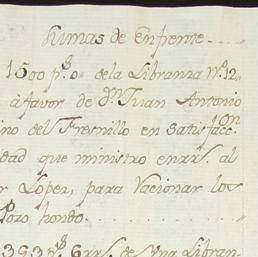 Sumas de Enfrente....
1500 p.s 0.. de la Libranza N.o 12,,
à favor de D.n Juan Antonio
ino del Fresnillo en satisfacc.on
dad que ministro en rr.s al
r Loper, para Vacionar los
Pozo hondo..........
393 p.s 6 rr.s de Una Libran-